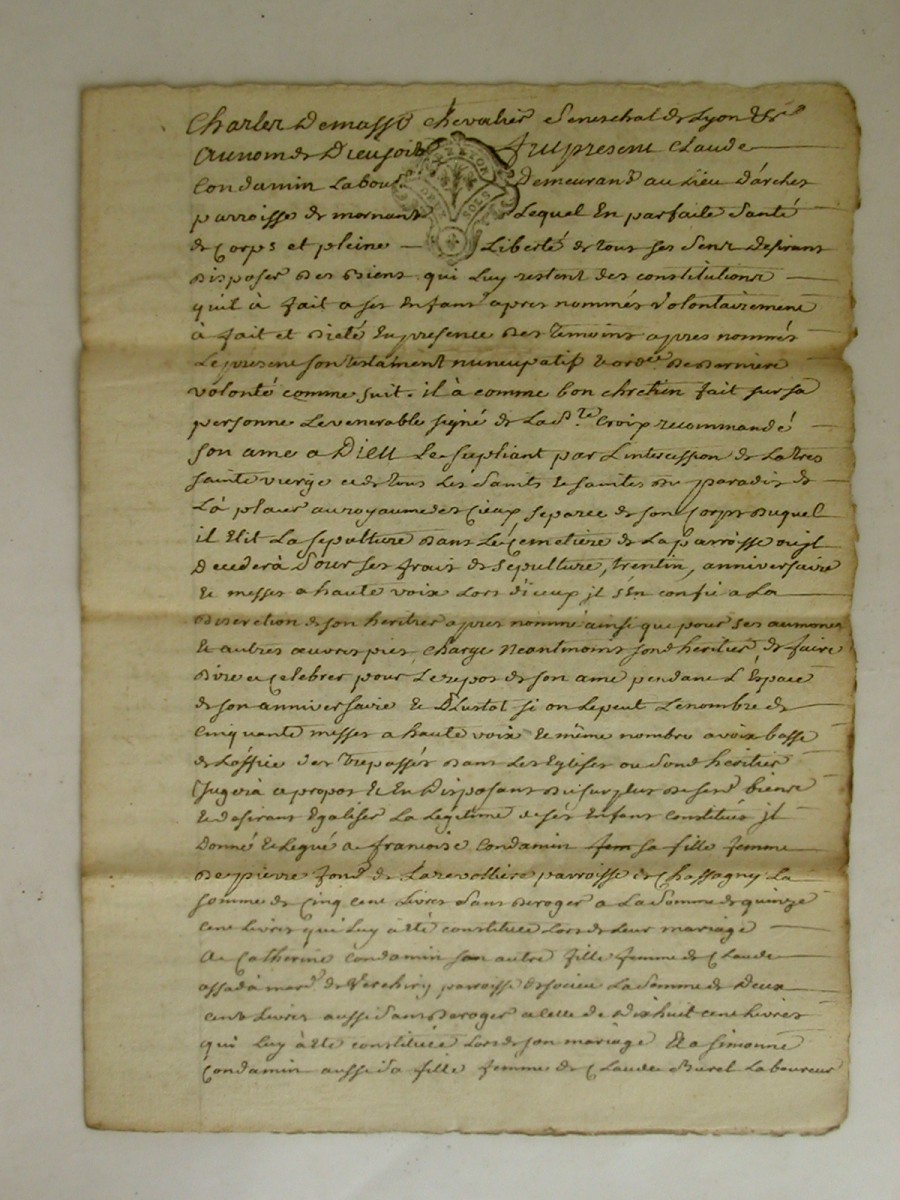 Charles Demasso Chevalier Seneschal de Lyon &
Au nom de Dieu soit fut present Claude
Condamin Labour.r Demeurant au Lieu d'arches
parroisse de mornant Lequel En parfaite Santé
de Corps et pleine — Liberté de tous ses Sens Desirant
Disposer Des Biens qui Luy restent des constitutions
qu'il à fait a ses Enfans apres nommés volontairement
à fait et Dicté En presence Des temoins apres nommés
Le present son testament nuncupatif et ord.ce De Derniere
volonté comme suit. il à comme bon chretien fait sur sa
personne Le venerable signé de La S.te Croix recommandé
son ame a Dieu Le supliant par L'intercession de La tres
sainte vierge et de tous Les Saints et saintes Du paradis de
La placer au royaume des Cieux separée de son Corps Duquel
il Elit La sepulture Dans Le Cemetiere de La parroisse ou il
Decedera Pour ses frais de sepulture, trentin, anniversaire
et messes a haute voix Lors d'iceux il s'En confie a La
Discretion de son heritier apres nommé ainsi que pour ses aumones
et autres œuvres pies, Charge Neantmoins sond heritier de faire
Dire et Celebrer pour Le repos de son ame pendant L'Espace
de son anniversaire et Plustot si on Le peut Le nombre de
Cinquante messes a haute voix et même nombre a voix basse
de L'office des trepassés Dans Les Eglises ou Sond heritier
Jugera a propos et En Disposant Du surplus De sesd biens
et desirant Egaliser La Legitime de ses Enfans constitués il
Donne et Legue a francoise Condamin fem sa fille femme
De pierre fond de Larevolliere parroisse de Chassagny La
somme de Cinq cent Livres Sans Deroger a La Somme de quinze
cent Livres qui Luy à eté constituée Lors de Leur mariage
A Catherine Condamin son autre fille femme de Claude
assada mar.d de Verchery parroisse de socieu La Somme de Deux
cent Livres aussi Sans Deroger a Celle de Dixhuit cent Livres
qui Luy à eté constituée Lors de son mariage Et a simonne
Condamin aussi Sa fille femme de Claude Buret Laboureur